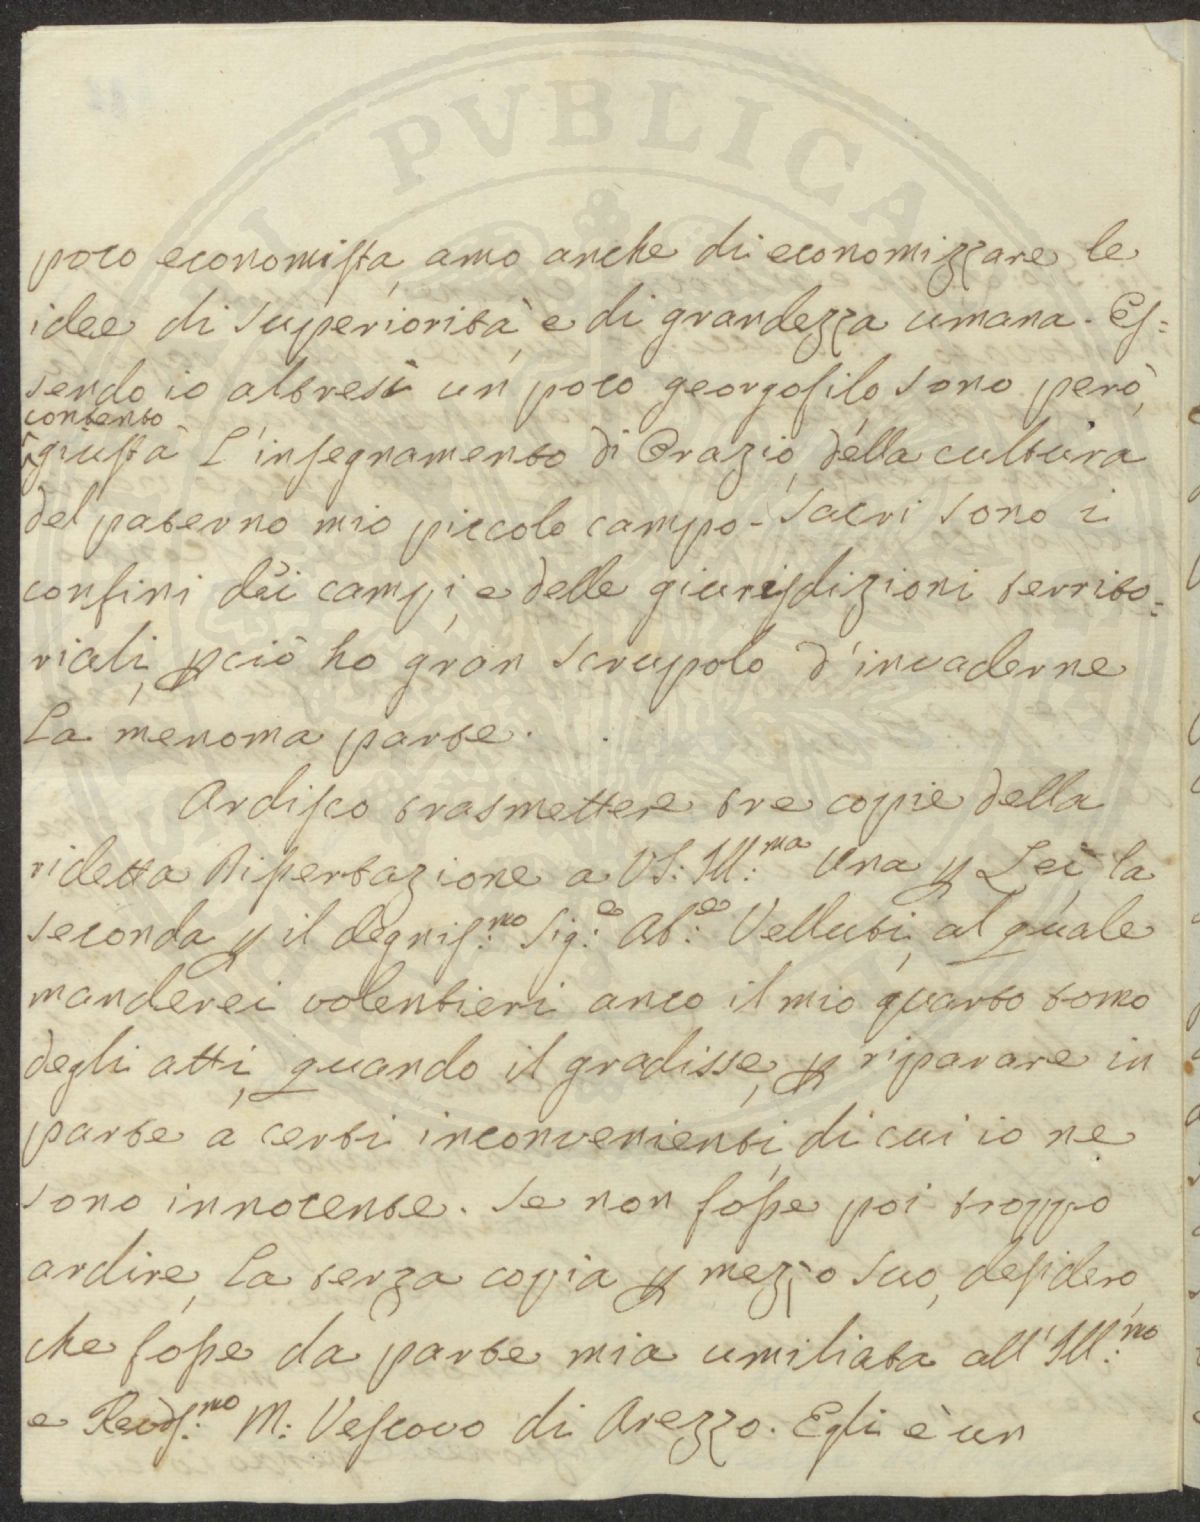 PVBLICA
poco economista, amo anche di economizzare le
idee di superiorità, e di grandezza umana. Es=
sendo io altresì un poco georgofilo sono però,
contento
^giusta L'insegnamento di Orazio, della cultura
del paterno mio piccolo campo - Sacri sono i
confini dei campi, e delle giurisdizioni territo=
riali, pciò ho gran scrupolo d'invaderne
La menoma parte.
Ardisco trasmettere tre copie della
ridetta Disertazione a VS: Ill:ma Una p Lei, la
seconda p il degnis:mo Sig:e Ab:e Velluti, al quale
manderei volentieri anco il mio quarto tomo
degli atti, quando il gradisse, p riparare in
parte a certi inconvenienti, di cui io ne
sono innocente. Se non fosse poi troppo
ardire, la terza copia p mezzo suo, desidero,
che fosse da parte mia umiliata all'Ill:mo
e Revds:mo M: Vescovo di Arezzo. Egli è un